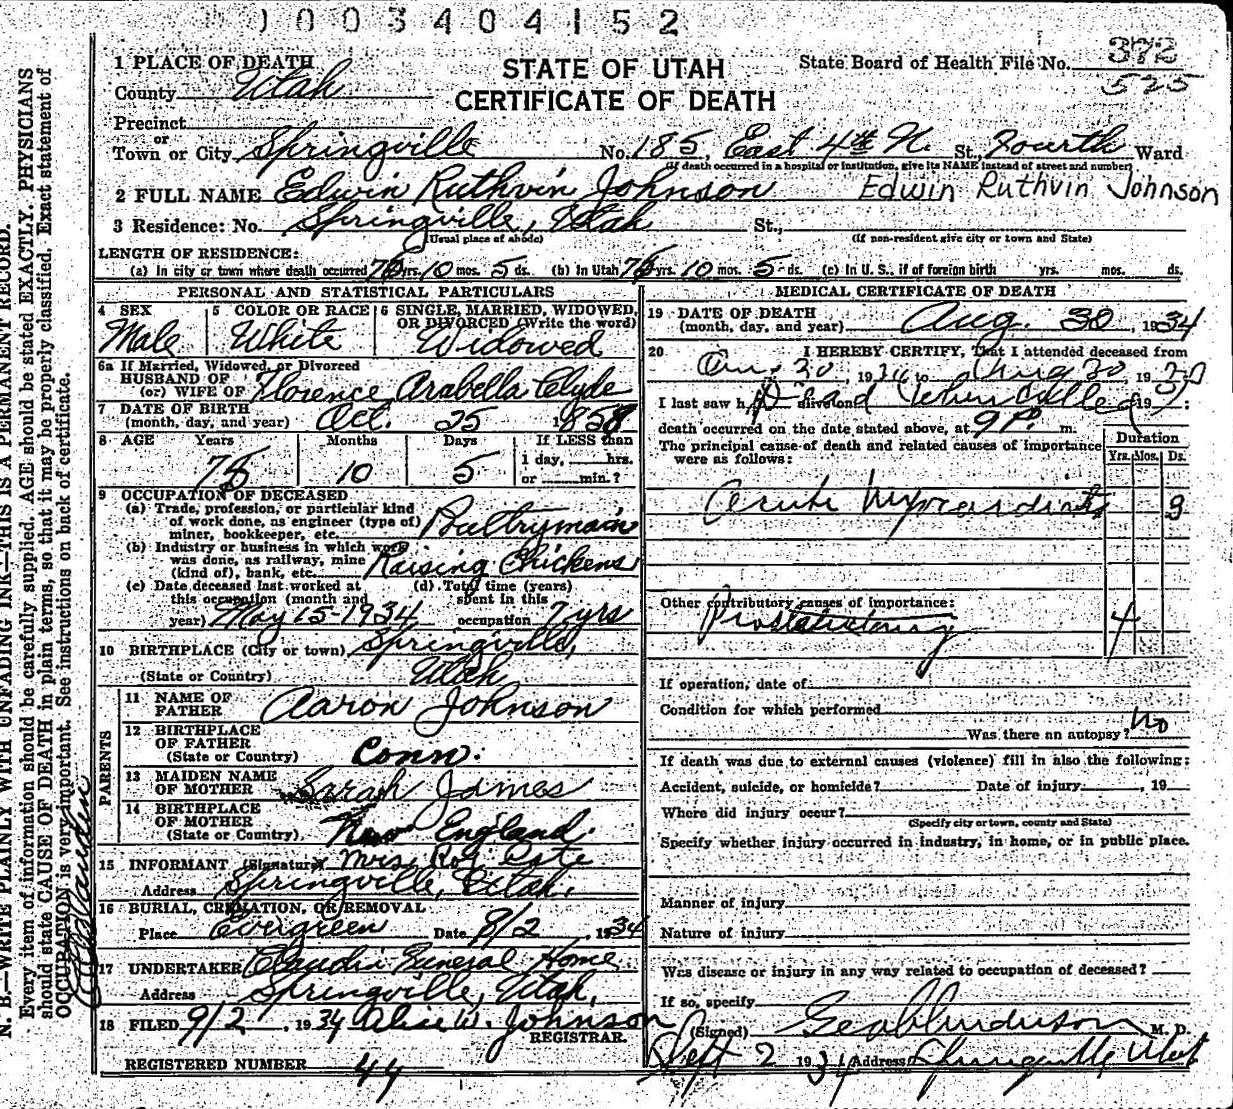 1003404152
STATE OF UTAH
CERTIFICATE OF DEATH
State Board of Health File No. 372
525
1 PLACE OF DEATH
County Utah
Precinct
or
Town or City Springville No. 185, East 4th N. St., Fourth Ward
(If death occurred in a hospital or institution, give its NAME instead of street and number)
2 FULL NAME Edwin Ruthvin Johnson Edwin Ruthvin Johnson
3 Residence: No. Springville, Utah St.,
(Usual place of abode) (If non-resident give city or town and State)
LENGTH OF RESIDENCE:
(a) In city or town where death occurred 75 yrs. 10 mos. 5 ds. (b) In Utah 75 yrs. 10 mos. 5 ds. (c) In U. S., if of foreign birth yrs. mos. ds.
PERSONAL AND STATISTICAL PARTICULARS
4 SEX 5 COLOR OR RACE 6 SINGLE, MARRIED, WIDOWED, OR DIVORCED (Write the word)
Male White Widowed
6a If Married, Widowed, or Divorced
HUSBAND OF
(or) WIFE OF Florence Arabella Clyde
7 DATE OF BIRTH
(month, day, and year) Oct. 25 1858
8 AGE Years Months Days If LESS than
1 day, hrs.
or min.?
75 10 5
9 OCCUPATION OF DECEASED
(a) Trade, profession, or particular kind
of work done, as engineer (type of)
miner, bookkeeper, etc. Poultrymain
(b) Industry or business in which work
was done, as railway, mine
(kind of), bank, etc. Raising Chickens
(c) Date deceased last worked at
this occupation (month and
year) May 15-1934
(d) Total time (years)
spent in this
occupation 7 yrs
10 BIRTHPLACE (City or town) Springville,
(State or Country) Utah
PARENTS
11 NAME OF
FATHER Aaron Johnson
12 BIRTHPLACE
OF FATHER
(State or Country) Conn.
13 MAIDEN NAME
OF MOTHER Sarah James
14 BIRTHPLACE
OF MOTHER
(State or Country) New England.
15 INFORMANT (Signature) Mrs. Roy
Address Springville, Utah.
16 BURIAL, CREMATION, OR REMOVAL
Place Evergreen Date 9/2, 1934
17 UNDERTAKER Claudin Funeral Home
Address Springville, Utah.
18 FILED 9/2, 1934 Alice W. Johnson
REGISTRAR.
REGISTERED NUMBER 44
MEDICAL CERTIFICATE OF DEATH
19 DATE OF DEATH
(month, day, and year) Aug. 30, 1934
20 I HEREBY CERTIFY, That I attended deceased from
Aug 30, 1934 to Aug 30 19
I last saw h alive on Dead when called 19 ;
death occurred on the date stated above, at 9 P. m.
The principal cause of death and related causes of importance
were as follows:
Duration
Yrs. Mos. Ds.
Acute Myocarditis 3
Other contributory causes of importance:
Prostatectomy 4
If operation, date of
Condition for which performed
Was there an autopsy? No
If death was due to external causes (violence) fill in also the following:
Accident, suicide, or homicide? Date of injury , 19
Where did injury occur?
(Specify city or town, county and State)
Specify whether injury occurred in industry, in home, or in public place.
Manner of injury
Nature of injury
Was disease or injury in any way related to occupation of deceased?
If so, specify
(Signed) Geo Anderson M. D.
Sept 2 1934 Address Springville Utah
N. B.—WRITE PLAINLY WITH UNFADING INK—THIS IS A PERMANENT RECORD.
Every item of information should be carefully supplied. AGE should be stated EXACTLY. PHYSICIANS
should state CAUSE OF DEATH in plain terms, so that it may be properly classified. Exact statement of
OCCUPATION is very important. See instructions on back of certificate.